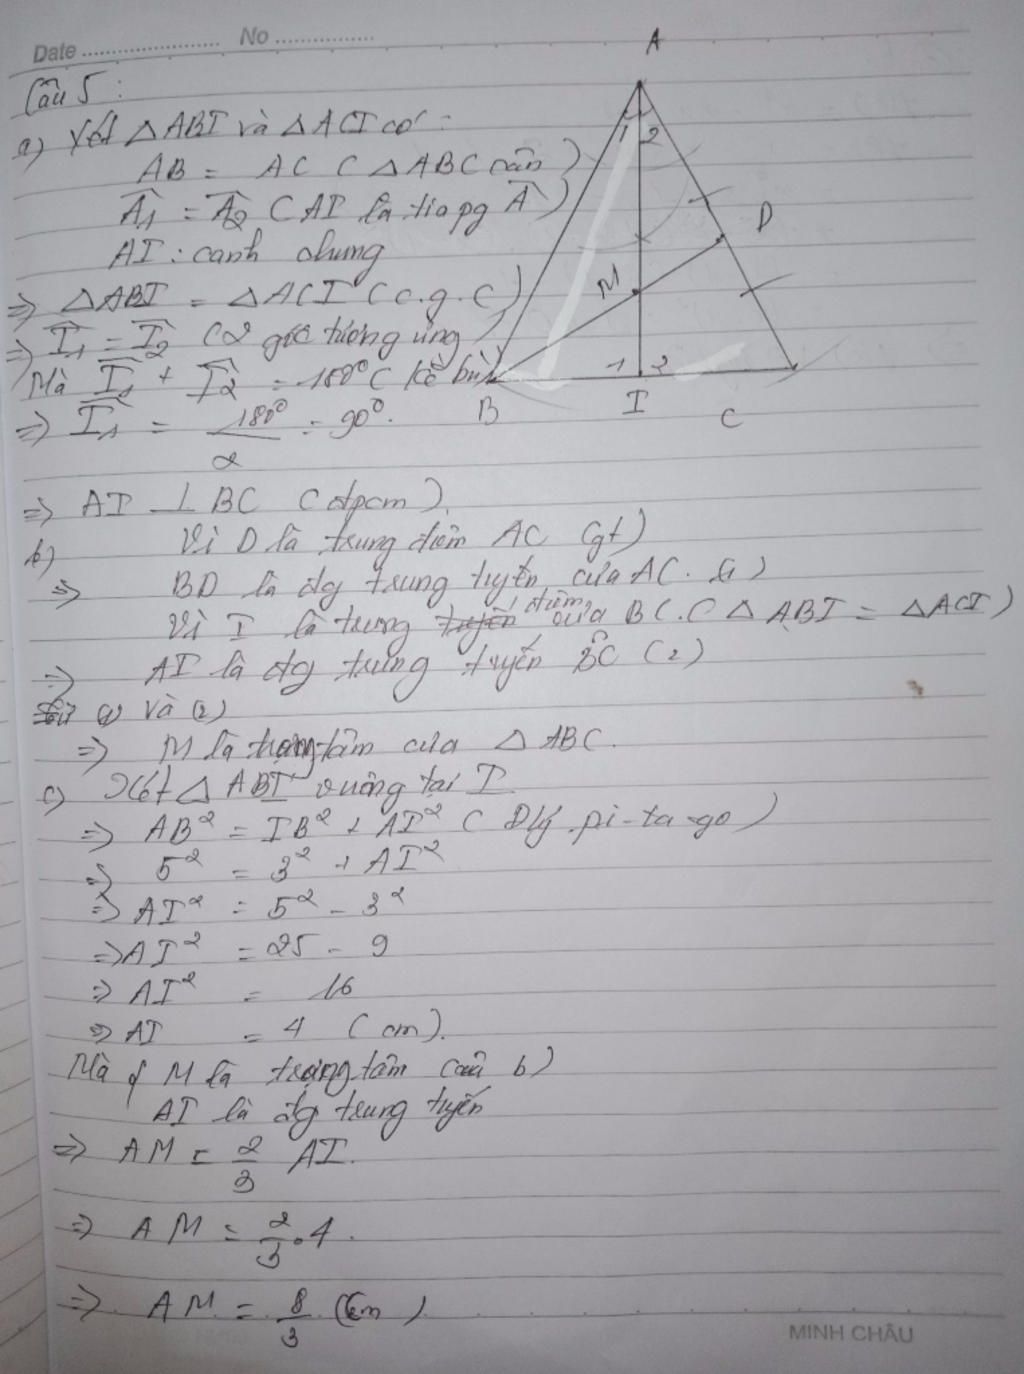 Date No
Câu 5:
a) Xét △ABI và △ACI có:
AB = AC (△ABC cân)
Â1 = Â2 (AI là tia pg Â)
AI: cạnh chung
⇒ △ABI = △ACI (c.g.c)
⇒ Î1 = Î2 (2 góc tương ứng)
Mà Î1 + Î2 = 180° (kề bù)
⇒ Î1 = 180°/2 = 90°.
⇒ AI ⊥ BC (đpcm).
b) Vì D là trung điểm AC (gt)
⇒ BD là đg trung tuyến của AC. (1)
Vì I là trung điểm của BC. (△ABI = △ACI)
⇒ AI là đg trung tuyến BC (2)
Từ (1) và (2)
⇒ M là trọng tâm của △ABC.
c) Xét △ABI vuông tại I
⇒ AB² = IB² + AI² (Đlý pi-ta-go)
⇒ 5² = 3² + AI²
⇒ AI² = 5² - 3²
⇒ AI² = 25 - 9
⇒ AI² = 16
⇒ AI = 4 (cm).
Mà { M là trọng tâm (câu b)
AI là đg trung tuyến
⇒ AM = 2/3 AI.
⇒ AM = 2/3 . 4.
⇒ AM = 8/3 (cm)
A
1 2
D
M
1 2
B I C
MINH CHÂU